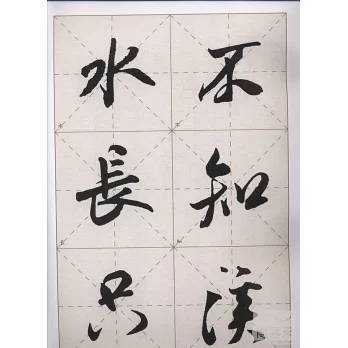 不知
水長只